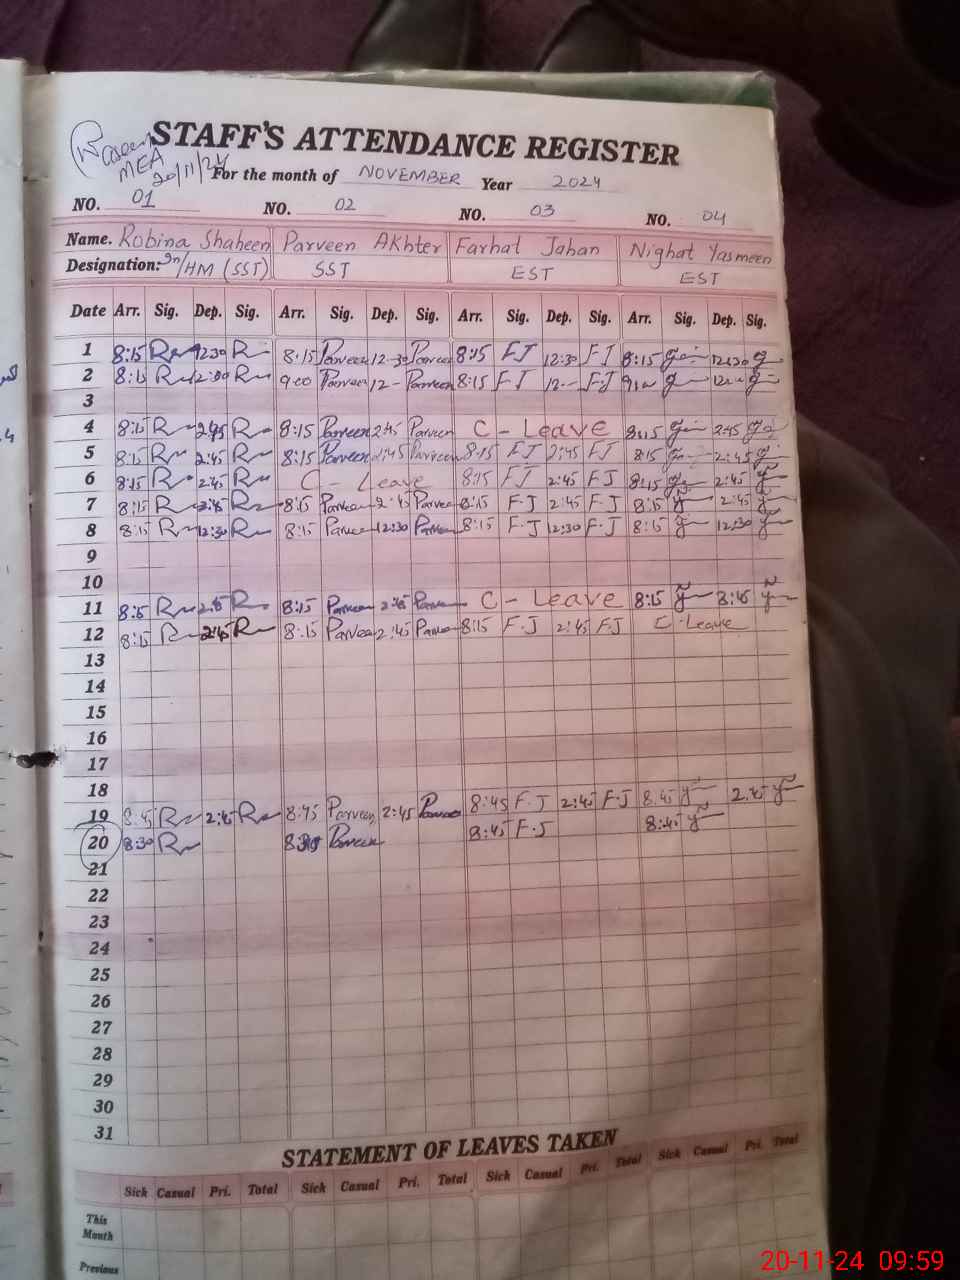 STAFF'S ATTENDANCE REGISTER
MEA
20/11/24
For the month of NOVEMBER Year 2024
NO. 01 NO. 02 NO. 03 NO. 04
Name. Robina Shaheen Parveen Akhter Farhat Jahan Nighat Yasmeen
Designation: In/HM (SST) SST EST EST
Date Arr. Sig. Dep. Sig. Arr. Sig. Dep. Sig. Arr. Sig. Dep. Sig. Arr. Sig. Dep. Sig.
1 8:15 12:30 8:15 Parveen 12-30 Parveen 8:15 FJ 12:30 FJ 8:15 12:30
2 8:15 9:00 Parveen 12- Parveen 8:15 FJ 12-- FJ
3
4 8:15 2:45 8:15 Parveen 2:45 Parveen C - Leave 8:15 2:45
5 8:15 2:45 8:15 Parveen 2:45 Parveen 8:15 FJ 2:45 FJ 8:15 2:45
6 8:15 2:45 C - Leave 8:15 FJ 2:45 FJ 8:15 2:45
7 8:15 2:45 8:15 Parveen 2:45 Parveen 8:15 F.J 2:45 FJ 8:15 2:45
8 8:15 12:30 8:15 Parveen 12:30 Parveen 8:15 F.J 12:30 F.J 8:15 12:30
9
10
11 8:15 2:45 8:15 Parveen 2:45 Parveen C - Leave 8:15
12 8:15 2:45 8:15 Parveen 2:45 Parveen 8:15 F.J 2:45 F.J C - Leave
13
14
15
16
17
18
19 8:45 2:45 8:45 Parveen 2:45 Parveen 8:45 F.J 2:45 F.J 8:45 2:45
20 8:30 Parveen 8:45 F.J 8:45
21
22
23
24
25
26
27
28
29
30
31
STATEMENT OF LEAVES TAKEN
Sick Casual Pri. Total Sick Casual Pri. Total Sick Casual Pri. Total Sick Casual Pri. Total
This
Month
Previous
20-11-24 09:59